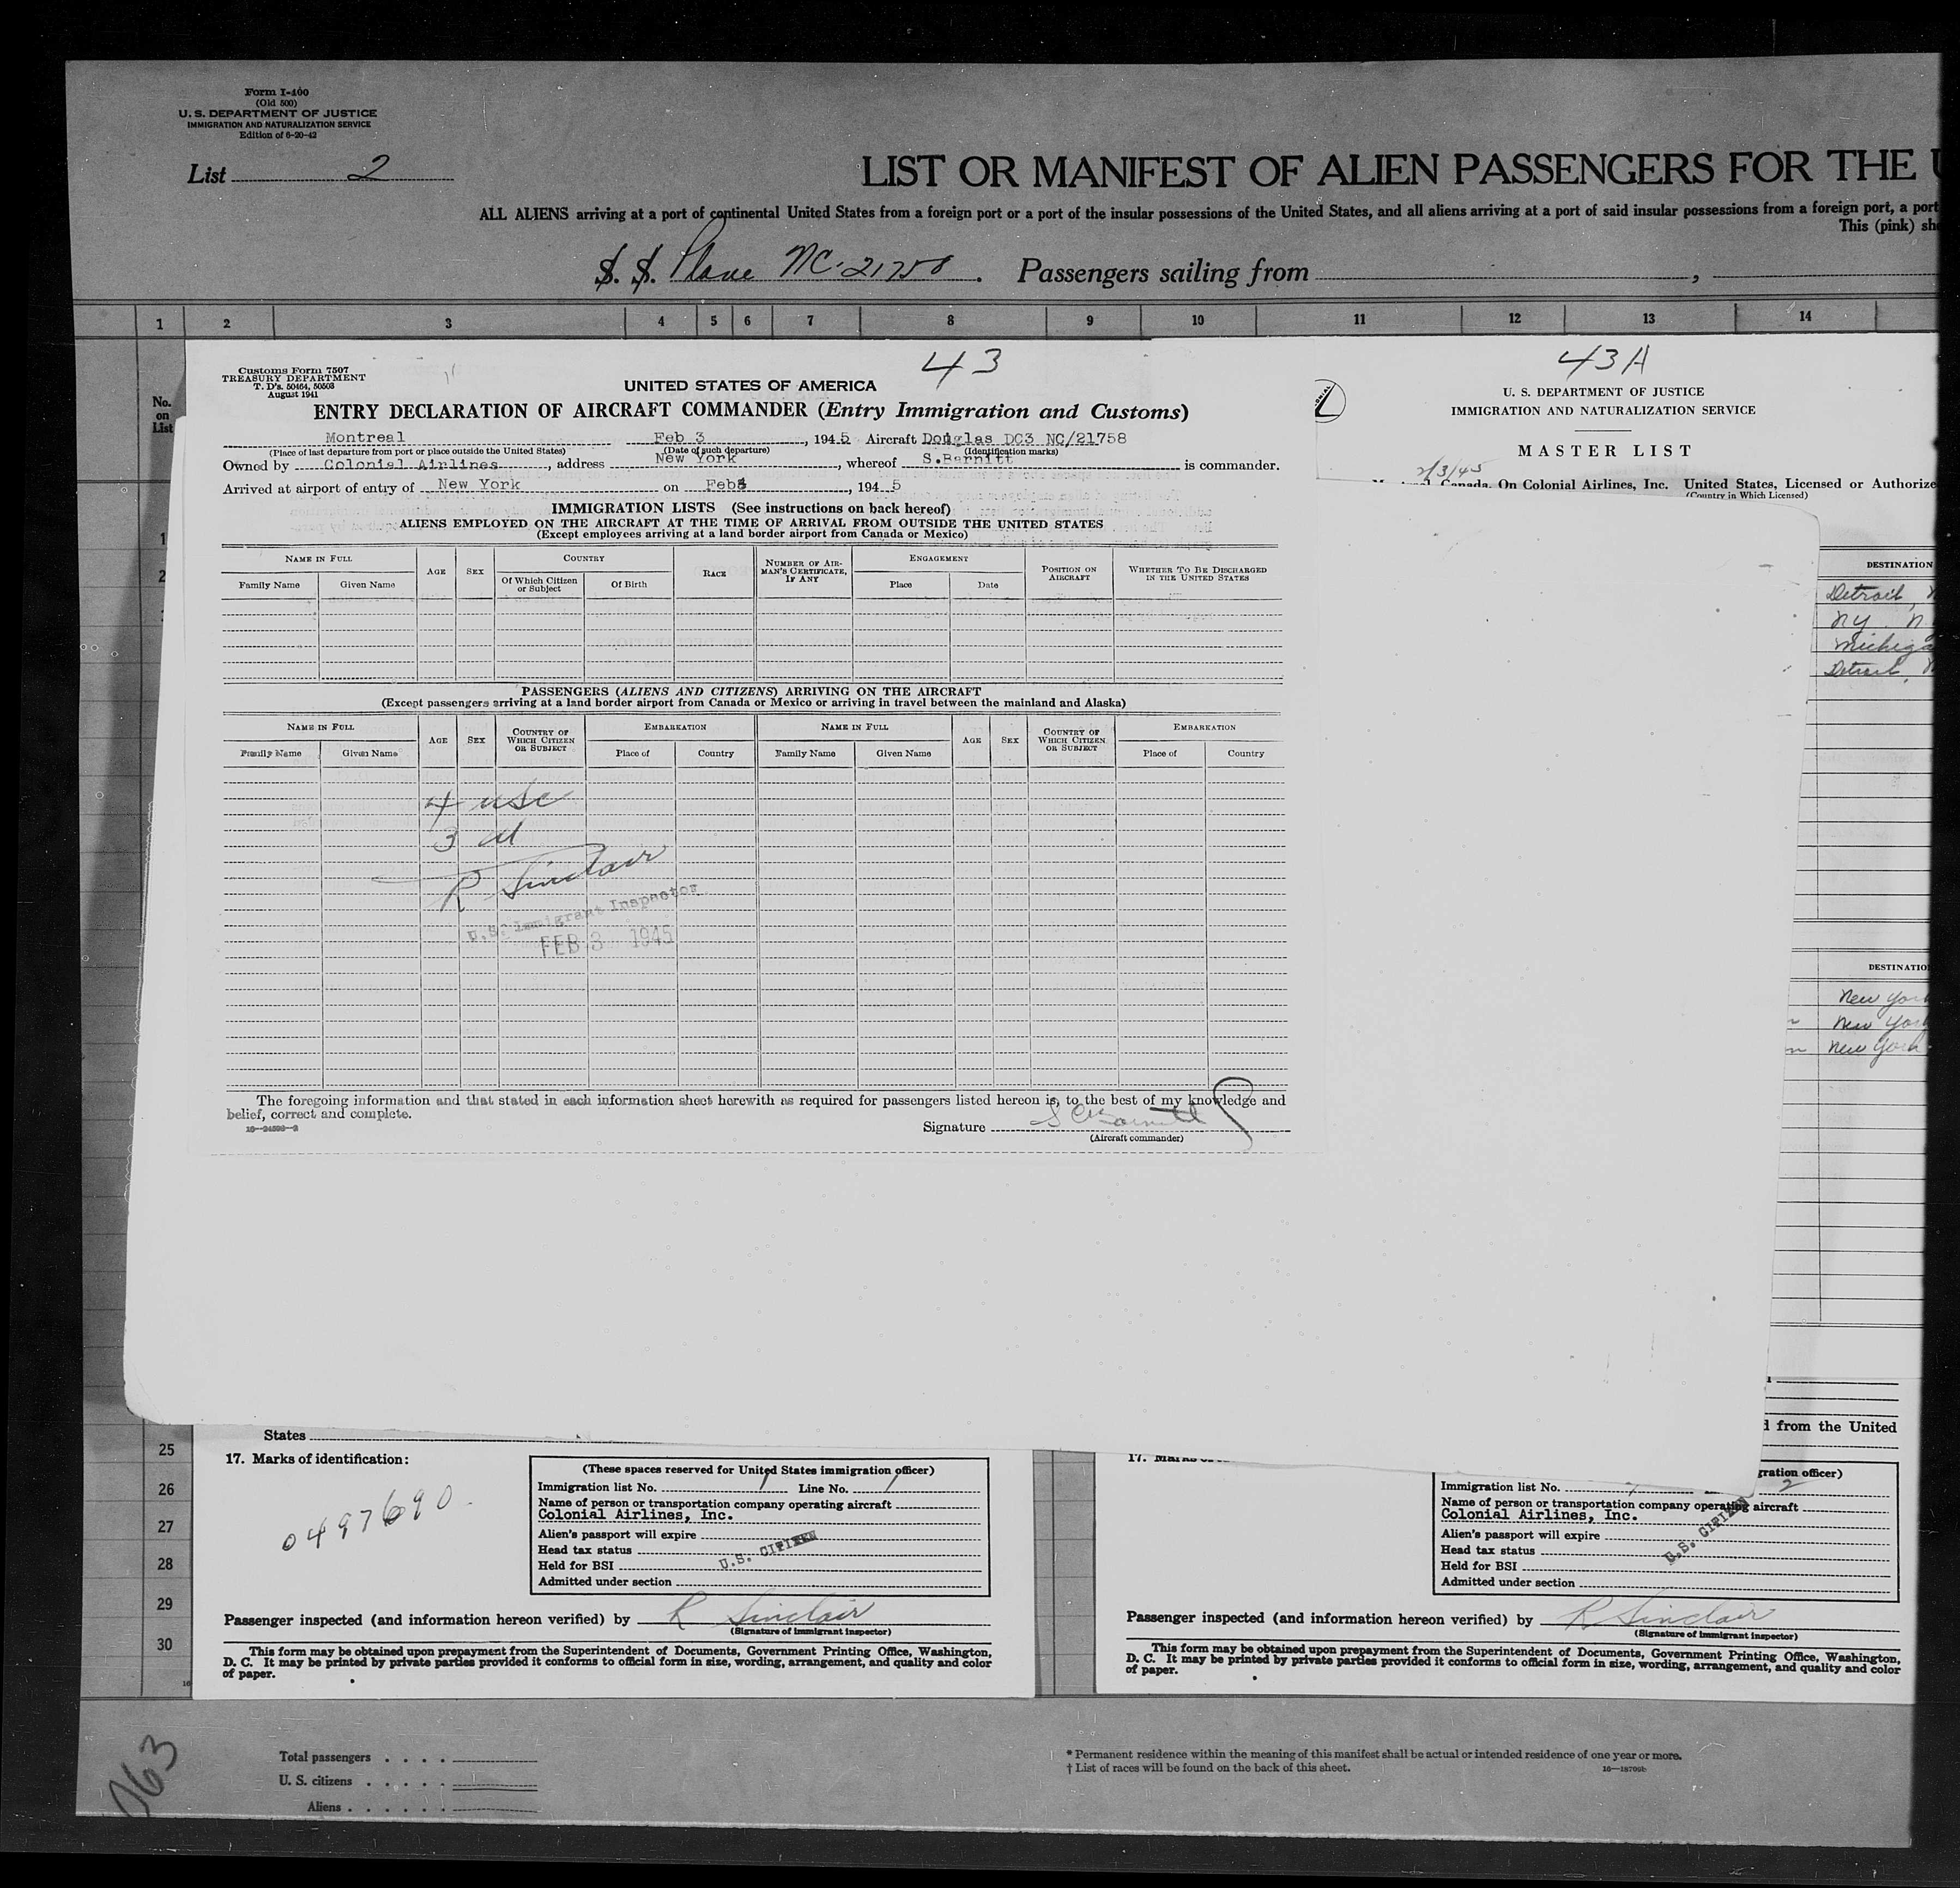 Form I-400
(Old 500)
U. S. DEPARTMENT OF JUSTICE
IMMIGRATION AND NATURALIZATION SERVICE
Edition of 6-20-42
List 2
LIST OR MANIFEST OF ALIEN PASSENGERS FOR THE U
ALL ALIENS arriving at a port of continental United States from a foreign port or a port of the insular possessions of the United States, and all aliens arriving at a port of said insular possessions from a foreign port, a port
This (pink) sh
S. S. Plane NC-21758. Passengers sailing from
1 2 3 4 5 6 7 8 9 10 11 12 13 14
No.
on
List
1
2
43
Customs Form 7507
TREASURY DEPARTMENT
T. D's. 50464, 50503
August 1941
UNITED STATES OF AMERICA
ENTRY DECLARATION OF AIRCRAFT COMMANDER (Entry Immigration and Customs)
Montreal Feb 3, 1945 Aircraft Douglas DC3 NC/21758
(Place of last departure from port or place outside the United States) (Date of such departure) (Identification marks)
Owned by Colonial Airlines, address New York, whereof S.Barnitt is commander.
Arrived at airport of entry of New York on Feb3, 1945
IMMIGRATION LISTS (See instructions on back hereof)
ALIENS EMPLOYED ON THE AIRCRAFT AT THE TIME OF ARRIVAL FROM OUTSIDE THE UNITED STATES
(Except employees arriving at a land border airport from Canada or Mexico)
NAME IN FULL AGE SEX COUNTRY RACE NUMBER OF AIRMAN'S CERTIFICATE, IF ANY ENGAGEMENT POSITION ON AIRCRAFT WHETHER TO BE DISCHARGED IN THE UNITED STATES
Family Name Given Name Of Which Citizen or Subject Of Birth Place Date
PASSENGERS (ALIENS AND CITIZENS) ARRIVING ON THE AIRCRAFT
(Except passengers arriving at a land border airport from Canada or Mexico or arriving in travel between the mainland and Alaska)
NAME IN FULL AGE SEX COUNTRY OF WHICH CITIZEN OR SUBJECT EMBARKATION NAME IN FULL AGE SEX COUNTRY OF WHICH CITIZEN OR SUBJECT EMBARKATION
Family Name Given Name Place of Country Family Name Given Name Place of Country
4 usc
3 al
R Sinclair
U.S. Immigrant Inspector
FEB 3 1945
The foregoing information and that stated in each information sheet herewith as required for passengers listed hereon is, to the best of my knowledge and
belief, correct and complete.
16—24599-2
Signature
(Aircraft commander)
43A
U. S. DEPARTMENT OF JUSTICE
IMMIGRATION AND NATURALIZATION SERVICE
MASTER LIST
2/3/45
Canada. On Colonial Airlines, Inc. United States, Licensed or Authorize
(Country in Which Licensed)
DESTINATION
Detroit,
NY. N
Michiga
Detroit,
DESTINATIO
New York
New York
New York
States
25
26
27
28
29
30
17. Marks of identification:
0497690
(These spaces reserved for United States immigration officer)
Immigration list No. 1 Line No. 1
Name of person or transportation company operating aircraft
Colonial Airlines, Inc.
Alien's passport will expire
Head tax status
Held for BSI
U.S. CITIZEN
Admitted under section
Passenger inspected (and information hereon verified) by R Sinclair
(Signature of immigrant inspector)
This form may be obtained upon prepayment from the Superintendent of Documents, Government Printing Office, Washington,
D. C. It may be printed by private parties provided it conforms to official form in size, wording, arrangement, and quality and color
of paper.
d from the United
17.
gration officer)
Immigration list No. 1 2
Name of person or transportation company operating aircraft
Colonial Airlines, Inc.
Alien's passport will expire
Head tax status
Held for BSI
U.S. CITIZEN
Admitted under section
Passenger inspected (and information hereon verified) by R Sinclair
(Signature of immigrant inspector)
This form may be obtained upon prepayment from the Superintendent of Documents, Government Printing Office, Washington,
D. C. It may be printed by private parties provided it conforms to official form in size, wording, arrangement, and quality and color
of paper.
Total passengers
U. S. citizens
Aliens
* Permanent residence within the meaning of this manifest shall be actual or intended residence of one year or more.
† List of races will be found on the back of this sheet.